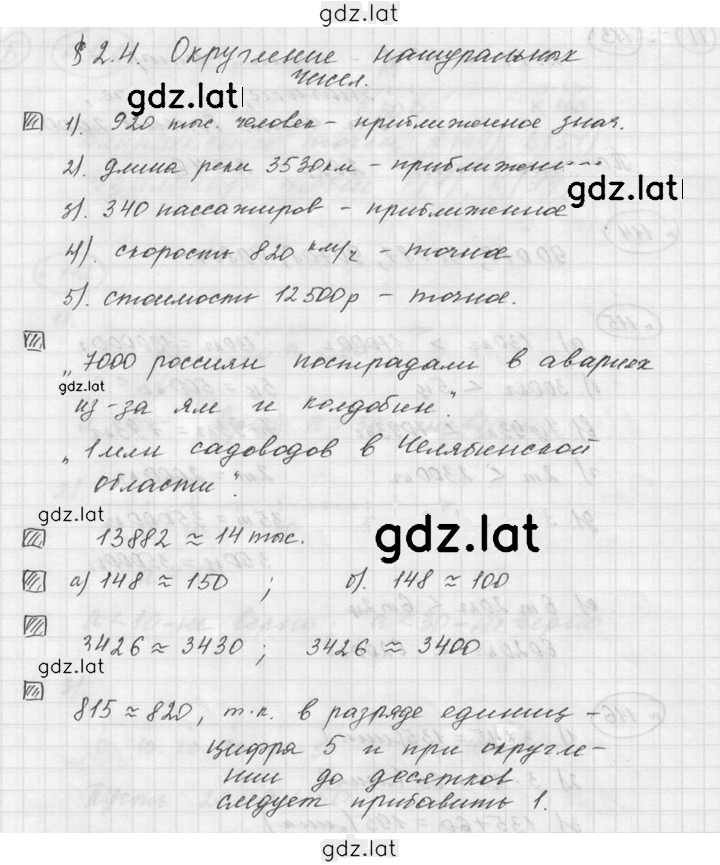 gdz.lat
§ 2.4. Округление натуральных
чисел.
gdz.lat
1). 920 тыс. человек - приближенное знач.
2). длина реки 3530км - приближенн
gdz.lat
3). 340 пассажиров - приближенное
4). скорость 820 км/ч - точное
5). стоимость 12500р - точное.
„7000 россиян пострадали в авариях
gdz.lat
из-за ям и колдобин".
„1млн садоводов в Челябинской
области".
gdz.lat
13882 ≈ 14 тыс.
gdz.lat
а) 148 ≈ 150 ; б). 148 ≈ 100
3426 ≈ 3430 ; 3426 ≈ 3400
gdz.lat
815 ≈ 820, т.к. в разряде единиц -
цифра 5 и при округле-
нии до десятков
следует прибавить 1.
gdz.lat